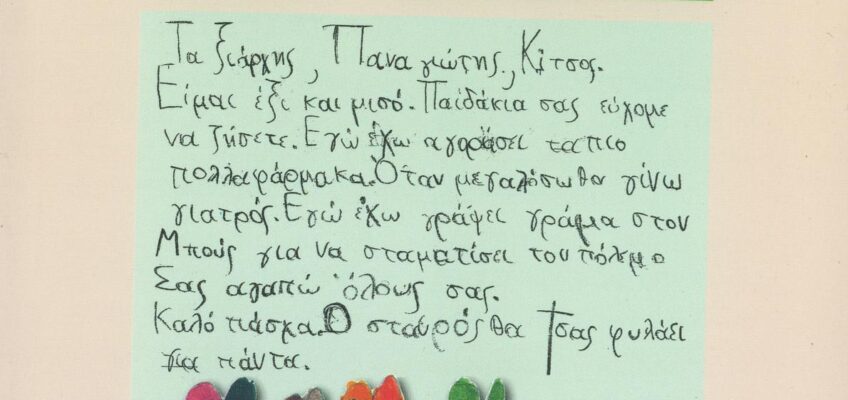 Ταξιάρχης, Παναγιώτης, Κίτσος.
Είμαι έξι και μισό. Παιδάκια σας εύχομε
να ζήσετε. Εγώ έχω αγοράσει τα πιο
πολλα φάρμακα. Όταν μεγαλόσω θα γίνω
γιατρός. Εγώ έχω γράψει γράμα στον
Μπούς για να σταματίσει τον πόλεμο
Σας αγαπώ όλους σας.
Καλό πάσχα. Ο σταυρός θα σας φυλάξι
για πάντα.